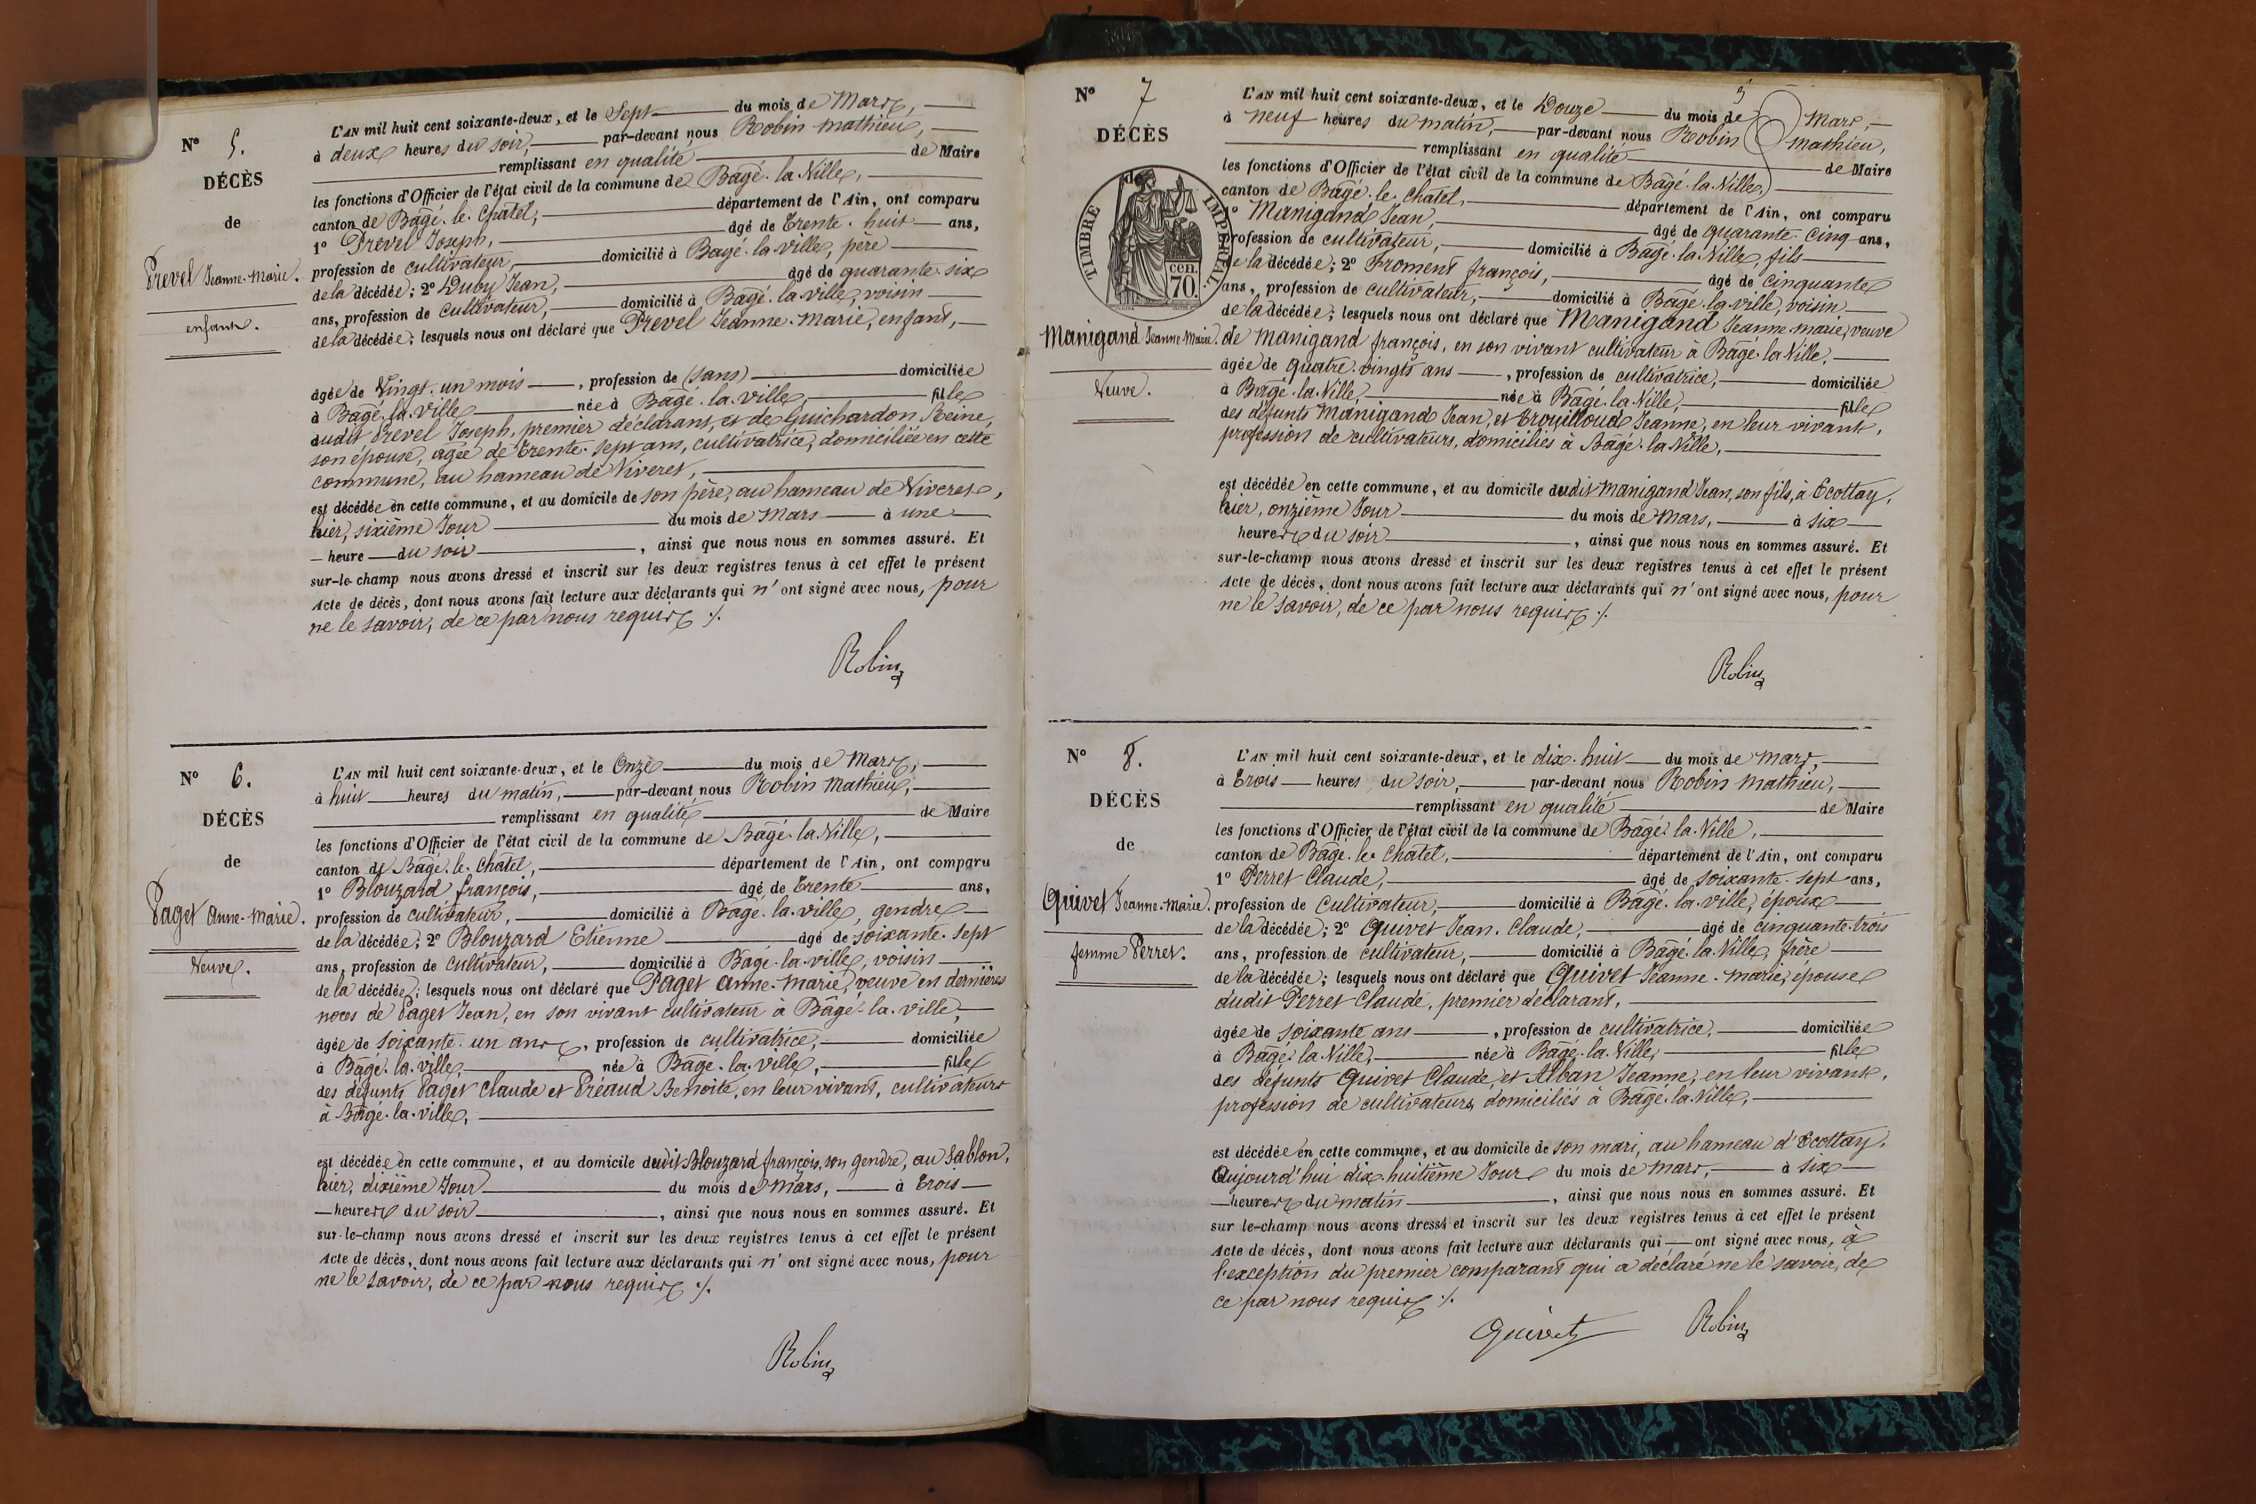 N° 5.
DÉCÈS
de
Prevel Jeanne-Marie.
enfant.
L'AN mil huit cent soixante-deux, et le Sept du mois de Mars,
à deux heures du soir, par-devant nous Robin Mathieu,
remplissant en qualité de Maire
les fonctions d'Officier de l'état civil de la commune de Bâgé-la-Ville,
canton de Bâgé-le-Châtel, département de l'Ain, ont comparu
1° Prevel Joseph, âgé de trente-huit ans,
profession de cultivateur, domicilié à Bâgé-la-ville, père
de la décédée; 2° Duby Jean, âgé de quarante-six
ans, profession de cultivateur, domicilié à Bâgé-la-ville, voisin
de la décédée; lesquels nous ont déclaré que Prevel Jeanne-Marie, enfant,
âgée de vingt-un mois, profession de (sans) domiciliée
à Bâgé-la-ville née à Bâgé-la-ville, fille
dudit Prevel Joseph, premier déclarant, et de Guichardon Reine,
son épouse, âgée de trente-sept ans, cultivatrice, domiciliée en cette
commune, au hameau de Viveret,
est décédée en cette commune, et au domicile de son père, au hameau de Viveret,
hier, sixième Jour du mois de Mars à une
heure du soir, ainsi que nous nous en sommes assuré. Et
sur-le-champ nous avons dressé et inscrit sur les deux registres tenus à cet effet le présent
Acte de décès, dont nous avons fait lecture aux déclarants qui n'ont signé avec nous, pour
ne le savoir, de ce par nous requis ./.
Robin
N° 6.
DÉCÈS
de
Paget Anne-Marie.
Veuve.
L'AN mil huit cent soixante-deux, et le Onze du mois de Mars,
à huit heures du matin, par-devant nous Robin Mathieu,
remplissant en qualité de Maire
les fonctions d'Officier de l'état civil de la commune de Bâgé-la-Ville,
canton de Bâgé-le-Châtel, département de l'Ain, ont comparu
1° Blouzard françois, âgé de trente ans,
profession de cultivateur, domicilié à Bâgé-la-ville, gendre
de la décédée; 2° Blouzard Etienne âgé de soixante-sept
ans, profession de cultivateur, domicilié à Bâgé-la-ville, voisin
de la décédée; lesquels nous ont déclaré que Paget Anne-Marie, veuve en dernières
noces de Paget Jean, en son vivant cultivateur à Bâgé-la-ville,
âgée de soixante-un ans, profession de cultivatrice, domiciliée
à Bâgé-la-ville, née à Bâgé-la-ville, fille
des défunts Paget Claude et Préaud Benoite, en leur vivant, cultivateurs
à Bâgé-la-ville,
est décédée en cette commune, et au domicile dudit Blouzard françois, son gendre, au Sablon,
hier, dixième Jour du mois de Mars, à trois
heures du soir, ainsi que nous nous en sommes assuré. Et
sur-le-champ nous avons dressé et inscrit sur les deux registres tenus à cet effet le présent
Acte de décès, dont nous avons fait lecture aux déclarants qui n'ont signé avec nous, pour
ne le savoir, de ce par nous requis ./.
Robin
3
N° 7
DÉCÈS
de
TIMBRE IMPÉRIAL.
70. cen.
Manigand Jeanne-Marie.
Veuve.
L'AN mil huit cent soixante-deux, et le Douze du mois de Mars,
à neuf heures du matin, par-devant nous Robin Mathieu,
remplissant en qualité de Maire
les fonctions d'Officier de l'état civil de la commune de Bâgé-la-Ville,
canton de Bâgé-le-Châtel, département de l'Ain, ont comparu
1° Manigand Jean, âgé de quarante-cinq ans,
profession de cultivateur, domicilié à Bâgé-la-Ville, fils
de la décédée; 2° Froment françois, âgé de cinquante
ans, profession de cultivateur, domicilié à Bâgé-la-ville, voisin
de la décédée; lesquels nous ont déclaré que Manigand Jeanne-marie, veuve
de Manigand françois, en son vivant cultivateur à Bâgé-la-Ville,
âgée de quatre-vingts ans, profession de cultivatrice, domiciliée
à Bâgé-la-Ville, née à Bâgé-la-Ville, fille
des défunts Manigand Jean, et Trouilloud Jeanne, en leur vivant,
profession de cultivateurs, domiciliés à Bâgé-la-Ville,
est décédée en cette commune, et au domicile dudit Manigand Jean, son fils, à Ecottay,
hier, onzième Jour du mois de Mars, à six
heures du soir, ainsi que nous nous en sommes assuré. Et
sur-le-champ nous avons dressé et inscrit sur les deux registres tenus à cet effet le présent
Acte de décès, dont nous avons fait lecture aux déclarants qui n'ont signé avec nous, pour
ne le savoir, de ce par nous requis ./.
Robin
N° 8.
DÉCÈS
de
Quivet Jeanne-Marie.
femme Perret.
L'AN mil huit cent soixante-deux, et le dix-huit du mois de Mars,
à trois heures du soir, par-devant nous Robin Mathieu,
remplissant en qualité de Maire
les fonctions d'Officier de l'état civil de la commune de Bâgé-la-Ville,
canton de Bâgé-le-Châtel, département de l'Ain, ont comparu
1° Perret Claude, âgé de soixante-sept ans,
profession de cultivateur, domicilié à Bâgé-la-ville, époux
de la décédée; 2° Quivet Jean-Claude, âgé de cinquante-trois
ans, profession de cultivateur, domicilié à Bâgé-la-Ville, frère
de la décédée; lesquels nous ont déclaré que Quivet Jeanne-Marie, épouse
dudit Perret Claude, premier déclarant,
âgée de soixante ans, profession de cultivatrice, domiciliée
à Bâgé-la-Ville, née à Bâgé-la-Ville, fille
des défunts Quivet Claude, et Alban Jeanne, en leur vivant,
profession de cultivateurs domiciliés à Bâgé-la-Ville,
est décédée en cette commune, et au domicile de son mari, au hameau d'Ecottay,
Aujourd'hui dix-huitième Jour du mois de Mars, à six
heures du matin, ainsi que nous nous en sommes assuré. Et
sur le-champ nous avons dressé et inscrit sur les deux registres tenus à cet effet le présent
Acte de décès, dont nous avons fait lecture aux déclarants qui ont signé avec nous, à
l'exception du premier comparant qui a déclaré ne le savoir, de
ce par nous requis ./.
Quivet Robin